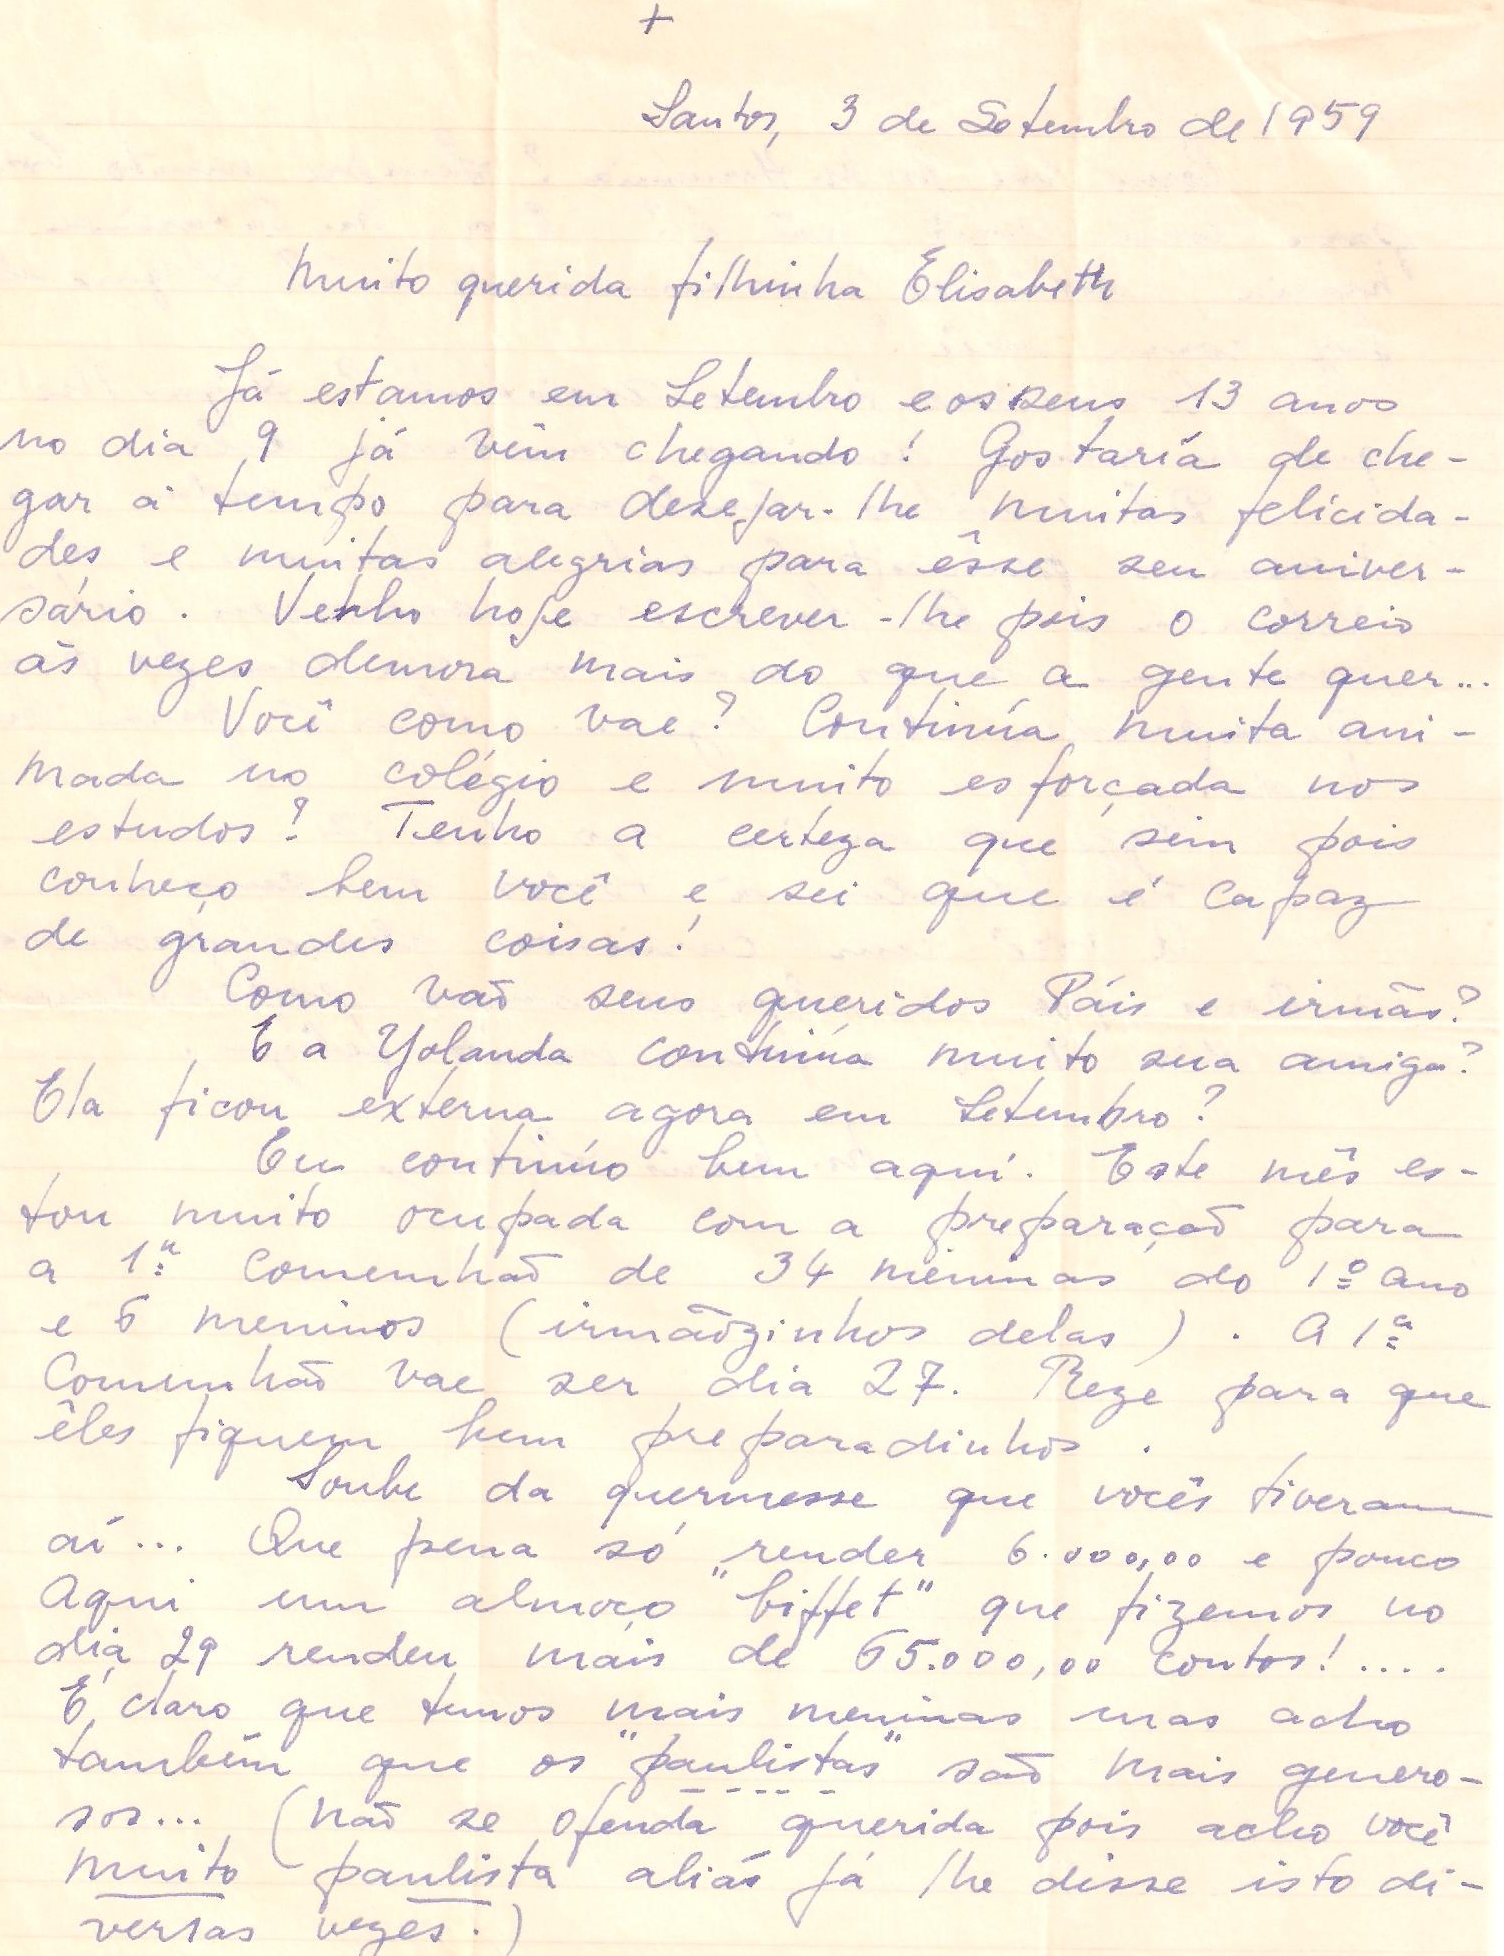 +
Santos, 3 de Setembro de 1959
Muito querida filhinha Elisabeth
Já estamos em Setembro e os seus 13 anos
no dia 9 já vêm chegando! Gostaria de che-
gar à tempo para desejar-lhe muitas felicida-
des e muitas alegrias para êsse seu aniver-
sário. Venho hoje escrever-lhe pois o correio
às vezes demora mais do que a gente quer...
Você como vae? Continúa muita ani-
mada no colégio e muito esforçada nos
estudos? Tenho a certeza que sim pois
conheço bem você e sei que é capaz
de grandes coisas!
Como vaõ seus queridos Páis e irmãs?
E a Yolanda continúa muito sua amiga?
Ela ficou externa agora em Setembro?
Eu continúo bem aqui. Este mês es-
tou muito ocupada com a preparaçaõ para
a 1ª Comemhaõ de 34 meninas do 1º ano
e 6 meninos (irmãozinhos delas). A 1ª
Comunhaõ vae ser dia 27. Reze para que
êles fiquem bem preparadinhos.
Soube da quermesse que vocês tiveram
aí... Que pena só render 6.000,00 e pouco
Aqui um almoço "biffet" que fizemos no
dia 29 rendeu mais de 65.000,00 contos!....
É claro que temos mais meninas mas acho
também que os "paulistas" saõ mais genero-
sos... (naõ se ofenda querida pois acho você
muito paulista aliás já lhe disse isto di-
versas vezes.)